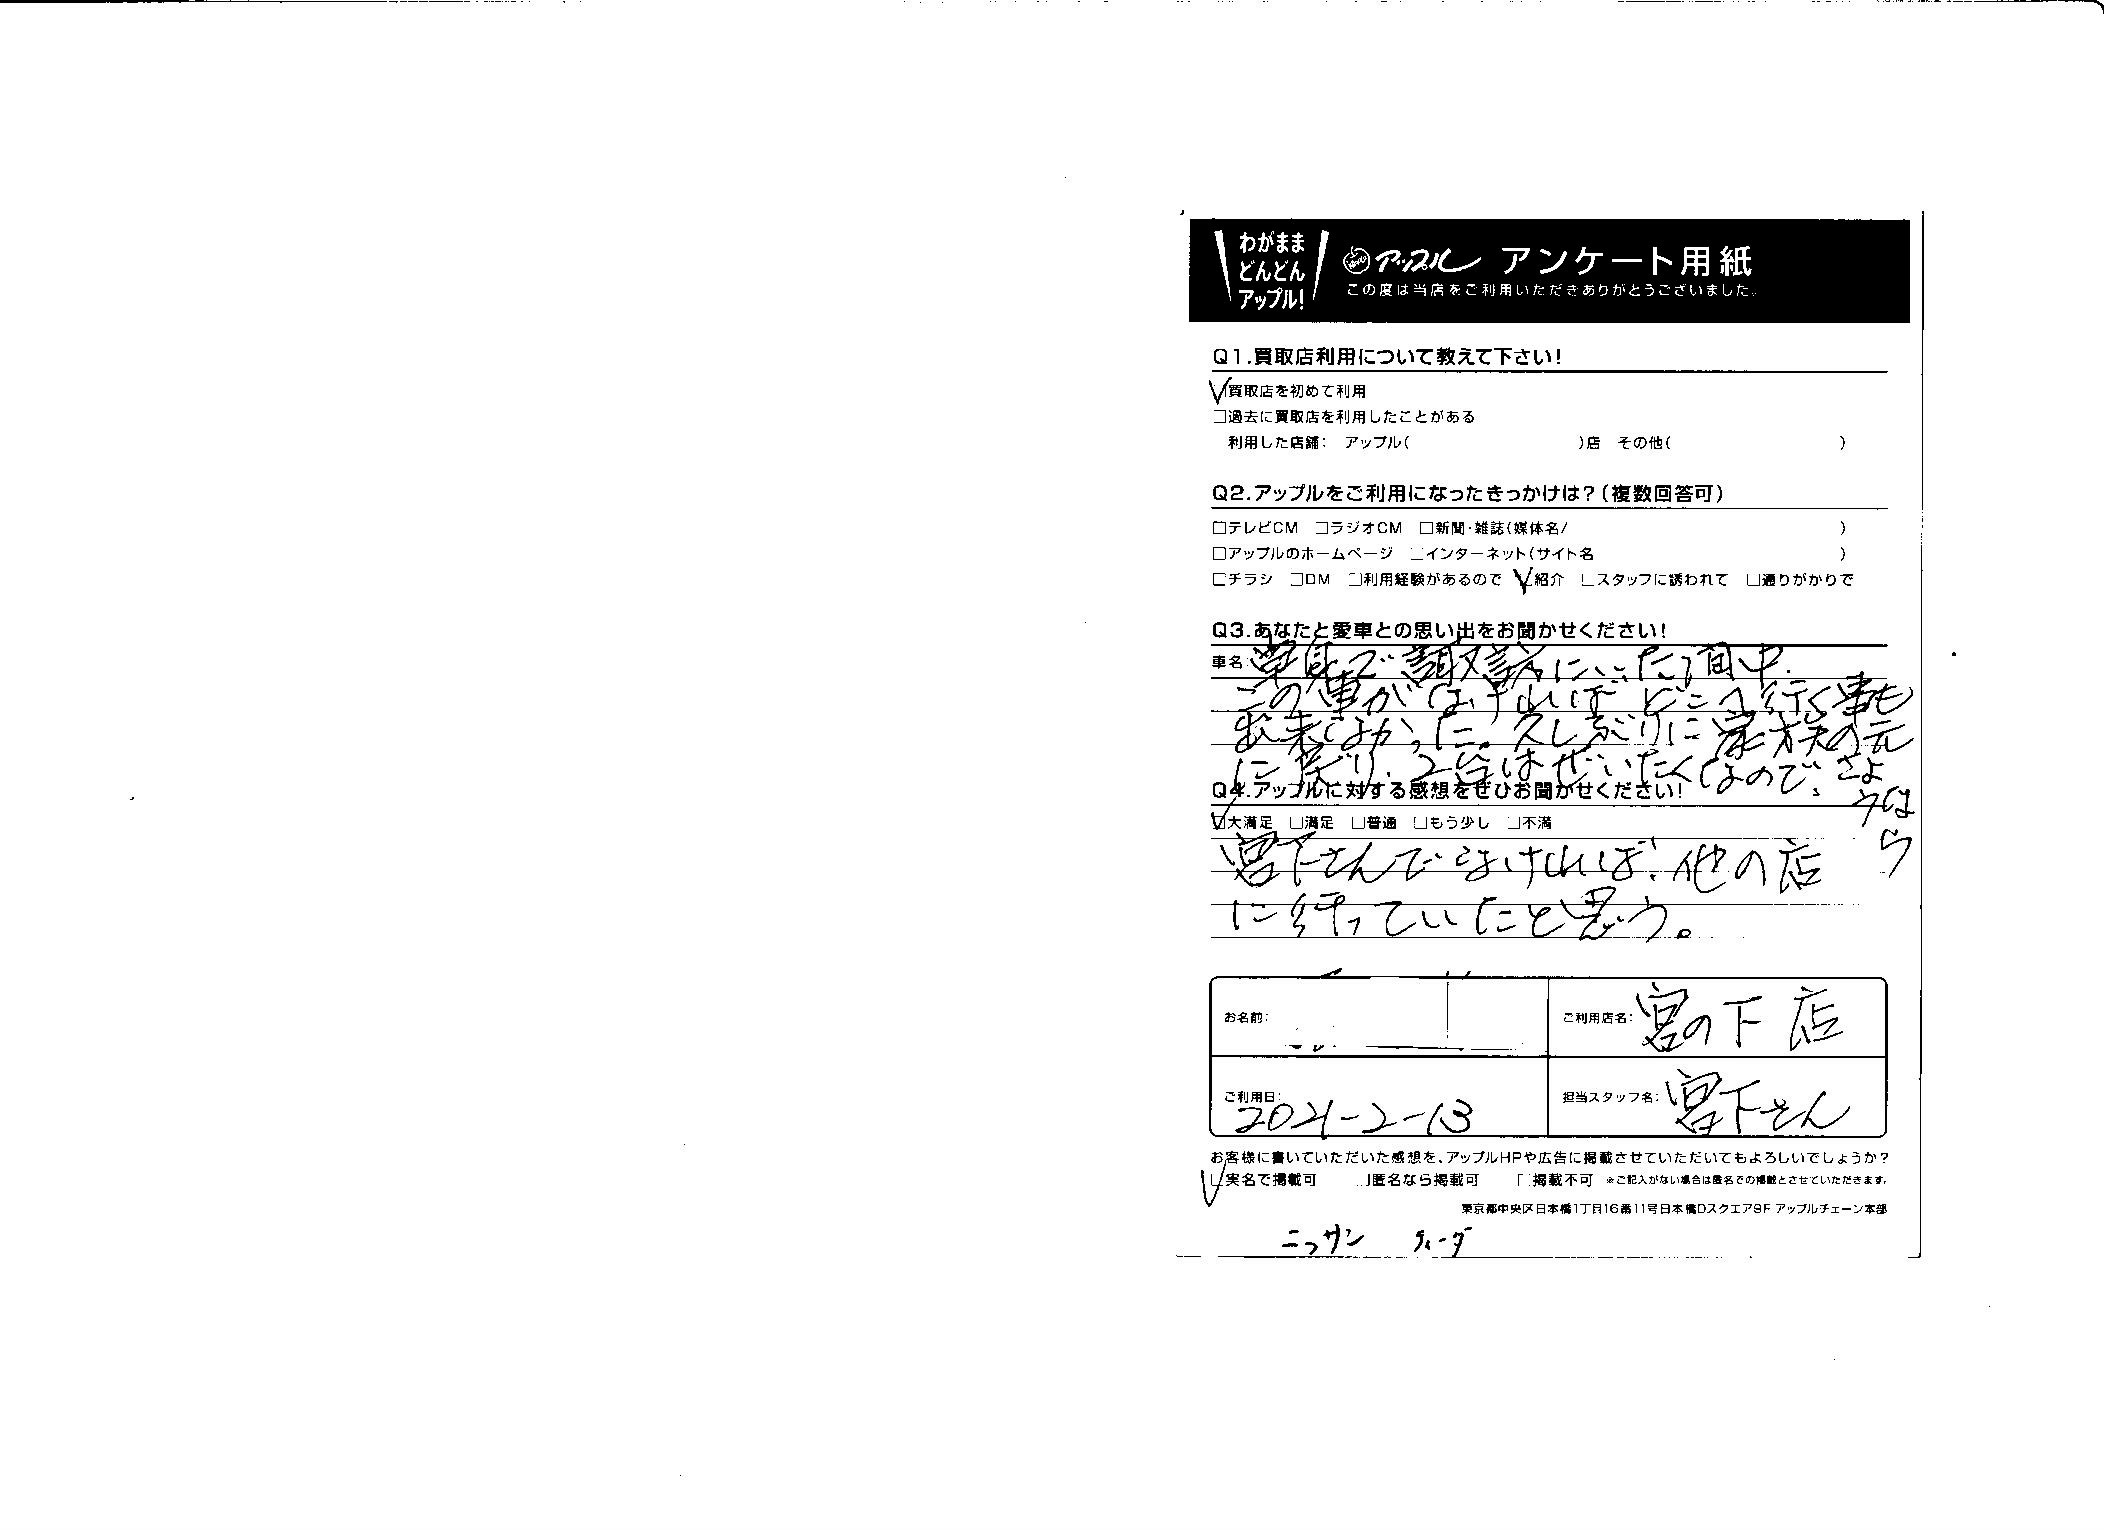 わがまま
どんどん
アップル!
アップル アンケート用紙
この度は当店をご利用いただきありがとうございました。
Q1.買取店利用について教えて下さい!
買取店を初めて利用
□過去に買取店を利用したことがある
利用した店舗: アップル( )店 その他( )
Q2.アップルをご利用になったきっかけは?(複数回答可)
□テレビCM □ラジオCM □新聞・雑誌(媒体名/ )
□アップルのホームページ □インターネット(サイト名 )
□チラシ □DM □利用経験があるので 紹介 □スタッフに誘われて □通りがかりで
Q3.あなたと愛車との思い出をお聞かせください!
車名: 単身で にいた間中、
この車がなければどこへ行く事も
出来なかった。久しぶりに家族の元
に戻り、2台はぜいたくなので、さよ
うな
ら
Q4.アップルに対する感想をぜひお聞かせください!
大満足 □満足 □普通 □もう少し □不満
宮下さんでなければ、他の店
に行っていたと思う。
お名前: ご利用店名: 宮の下店
ご利用日: 2021-2-13 担当スタッフ名: 宮下さん
お客様に書いていただいた感想を、アップルHPや広告に掲載させていただいてもよろしいでしょうか?
実名で掲載可 □匿名なら掲載可 □掲載不可 ※ご記入がない場合は匿名での掲載とさせていただきます。
東京都中央区日本橋1丁目16番11号日本橋Dスクエア9F アップルチェーン本部
ニッサン ティーダ